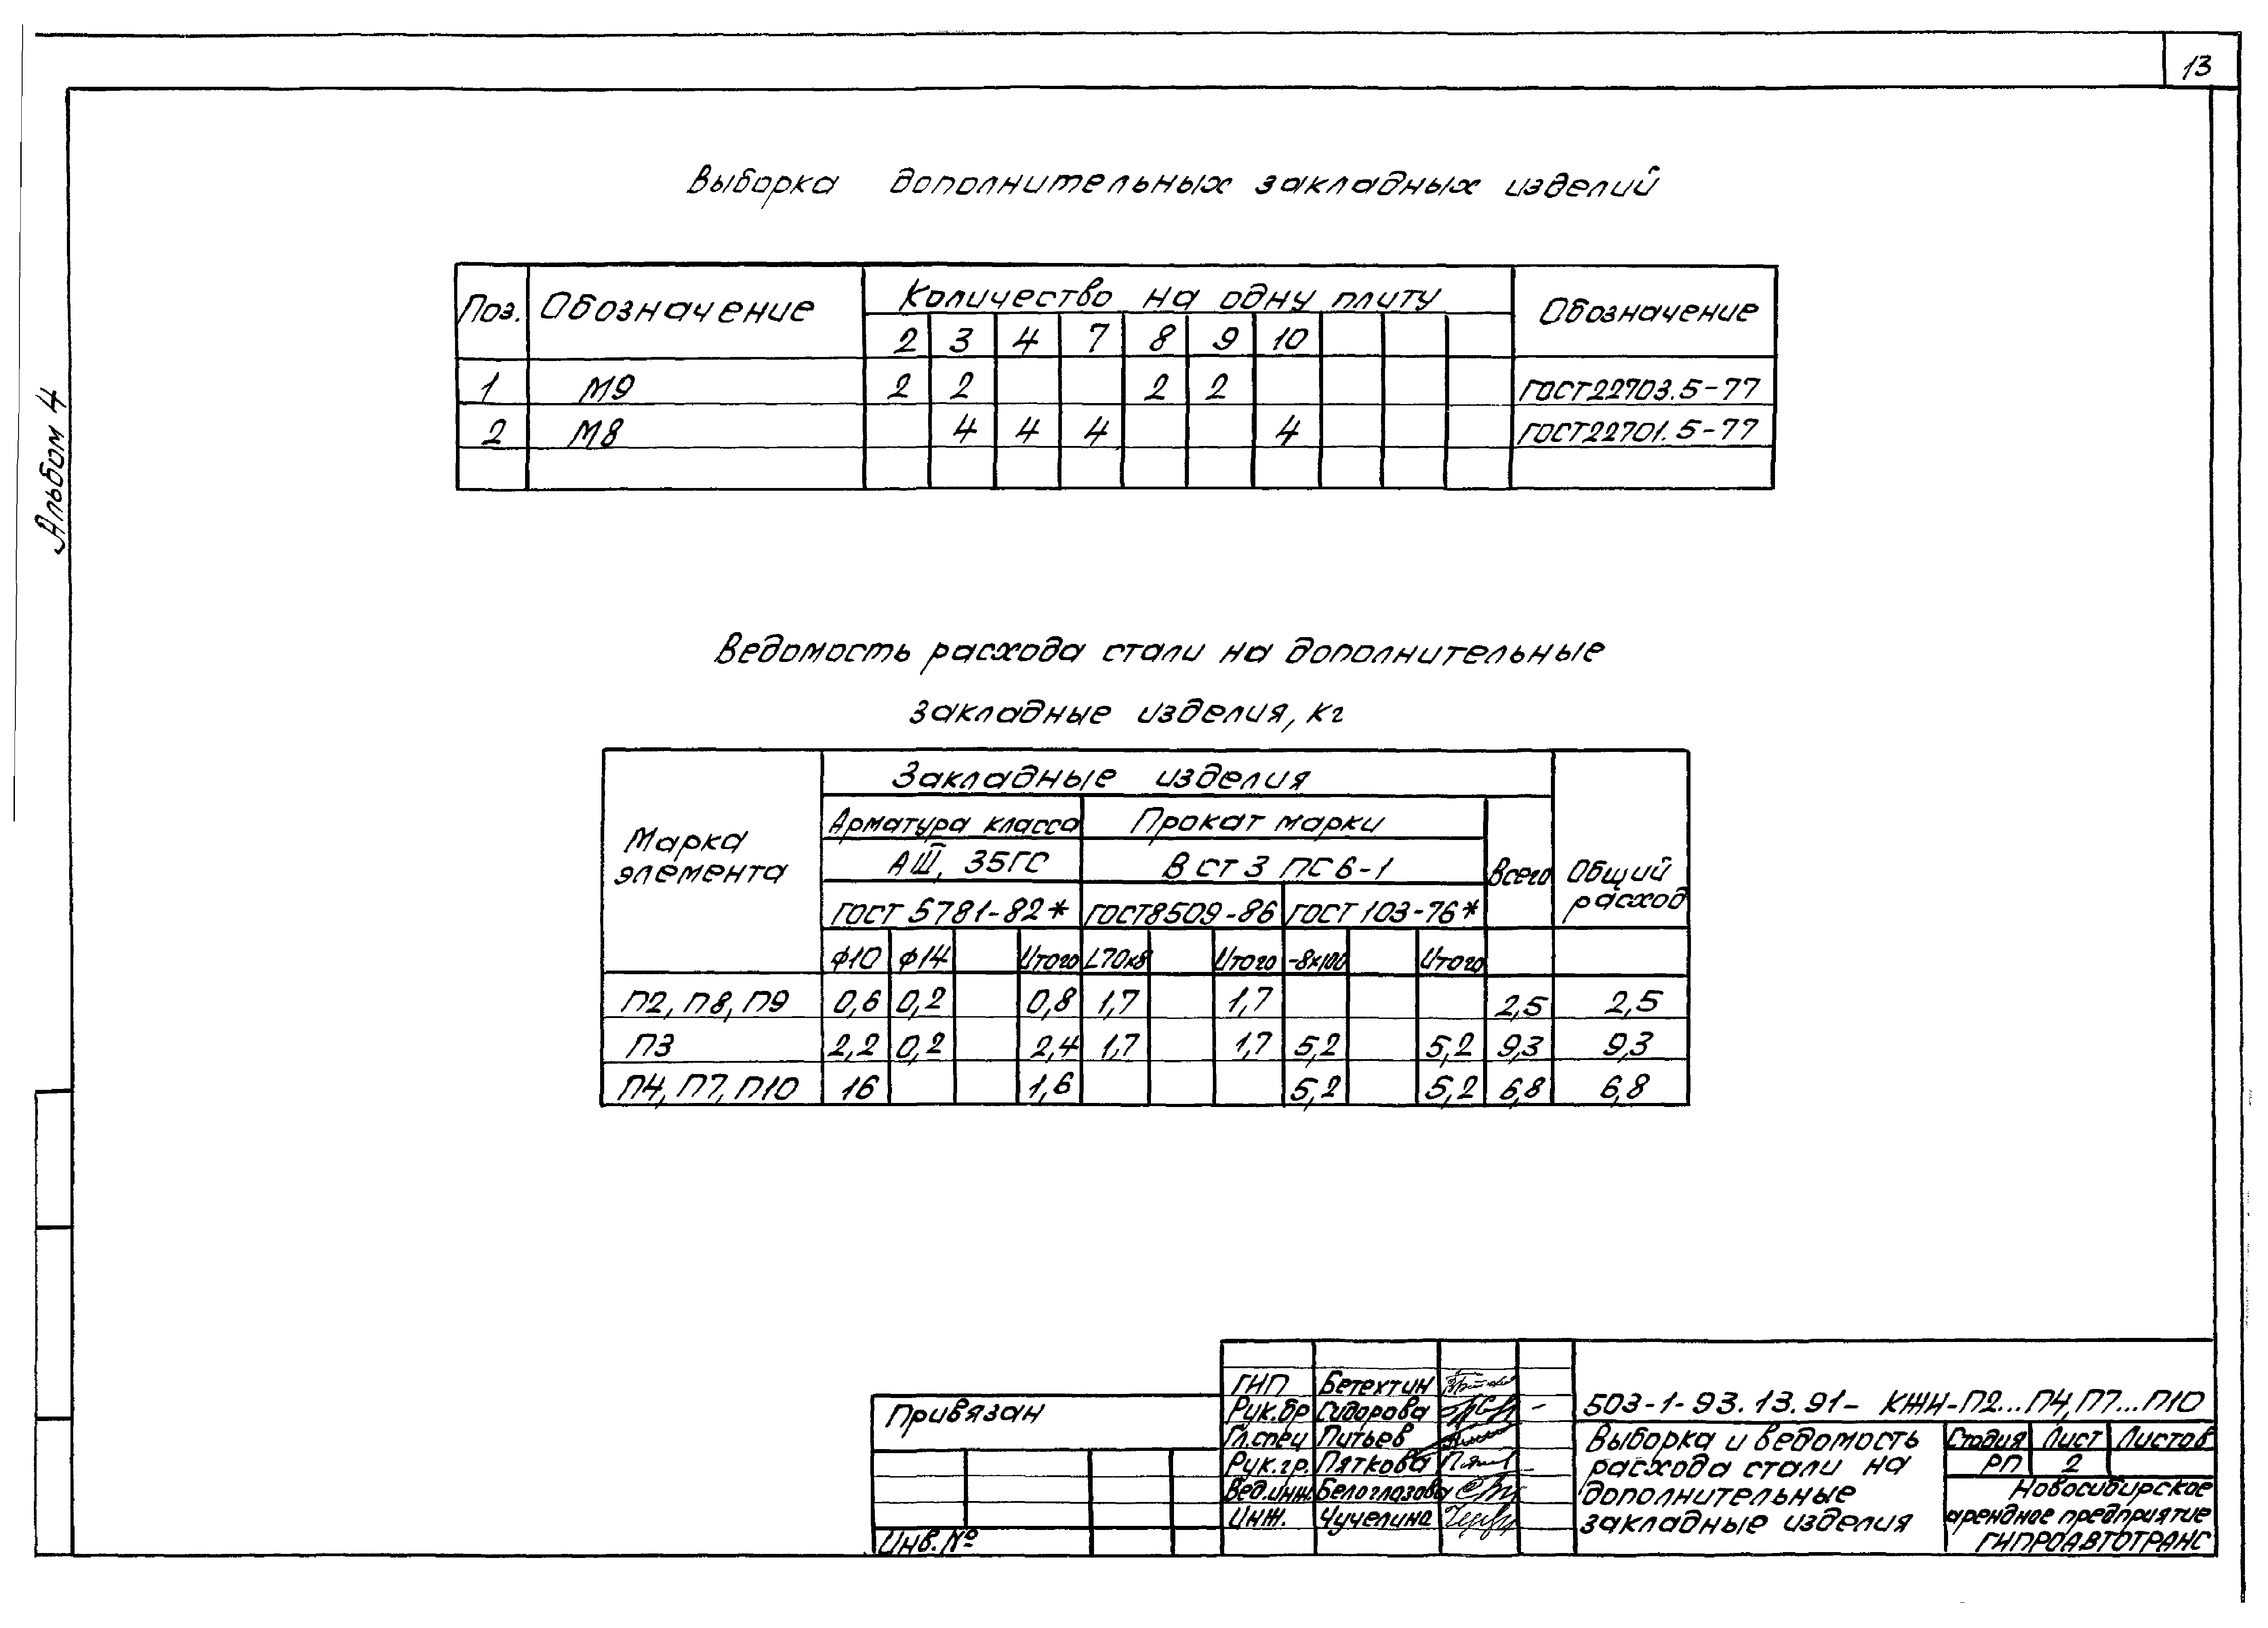 13
Альбом 4
Выборка дополнительных закладных изделий
Поз. Обозначение Количество на одну плиту Обозначение
2 3 4 7 8 9 10
1 М9 2 2 2 2 ГОСТ22703.5-77
2 М8 4 4 4 4 ГОСТ22701.5-77
Ведомость расхода стали на дополнительные
закладные изделия, кг
Марка элемента Закладные изделия Общий расход
Арматура класса Прокат марки Всего
АШ, 35ГС В ст 3 ПС 6-1
ГОСТ 5781-82* ГОСТ8509-86 ГОСТ 103-76*
Ф10 Ф14 Итого L70х8 Итого -8х100 Итого
П2, П8, П9 0,6 0,2 0,8 1,7 1,7 2,5 2,5
П3 2,2 0,2 2,4 1,7 1,7 5,2 5,2 9,3 9,3
П4, П7, П10 16 1,6 5,2 5,2 6,8 6,8
Привязан
Инв.№
ГИП Бетехтин
Рук.бр Сидорова
Гл.спец Питьев
Рук.гр. Пяткова
Вед.инж. Белоглазова
Инж. Чучелина
503-1-93.13.91- КЖИ-П2...П4,П7...П10
Выборка и ведомость
расхода стали на
дополнительные
закладные изделия
Стадия Лист Листов
РП 2
Новосибирское
арендное предприятие
ГИПРОАВТОТРАНС